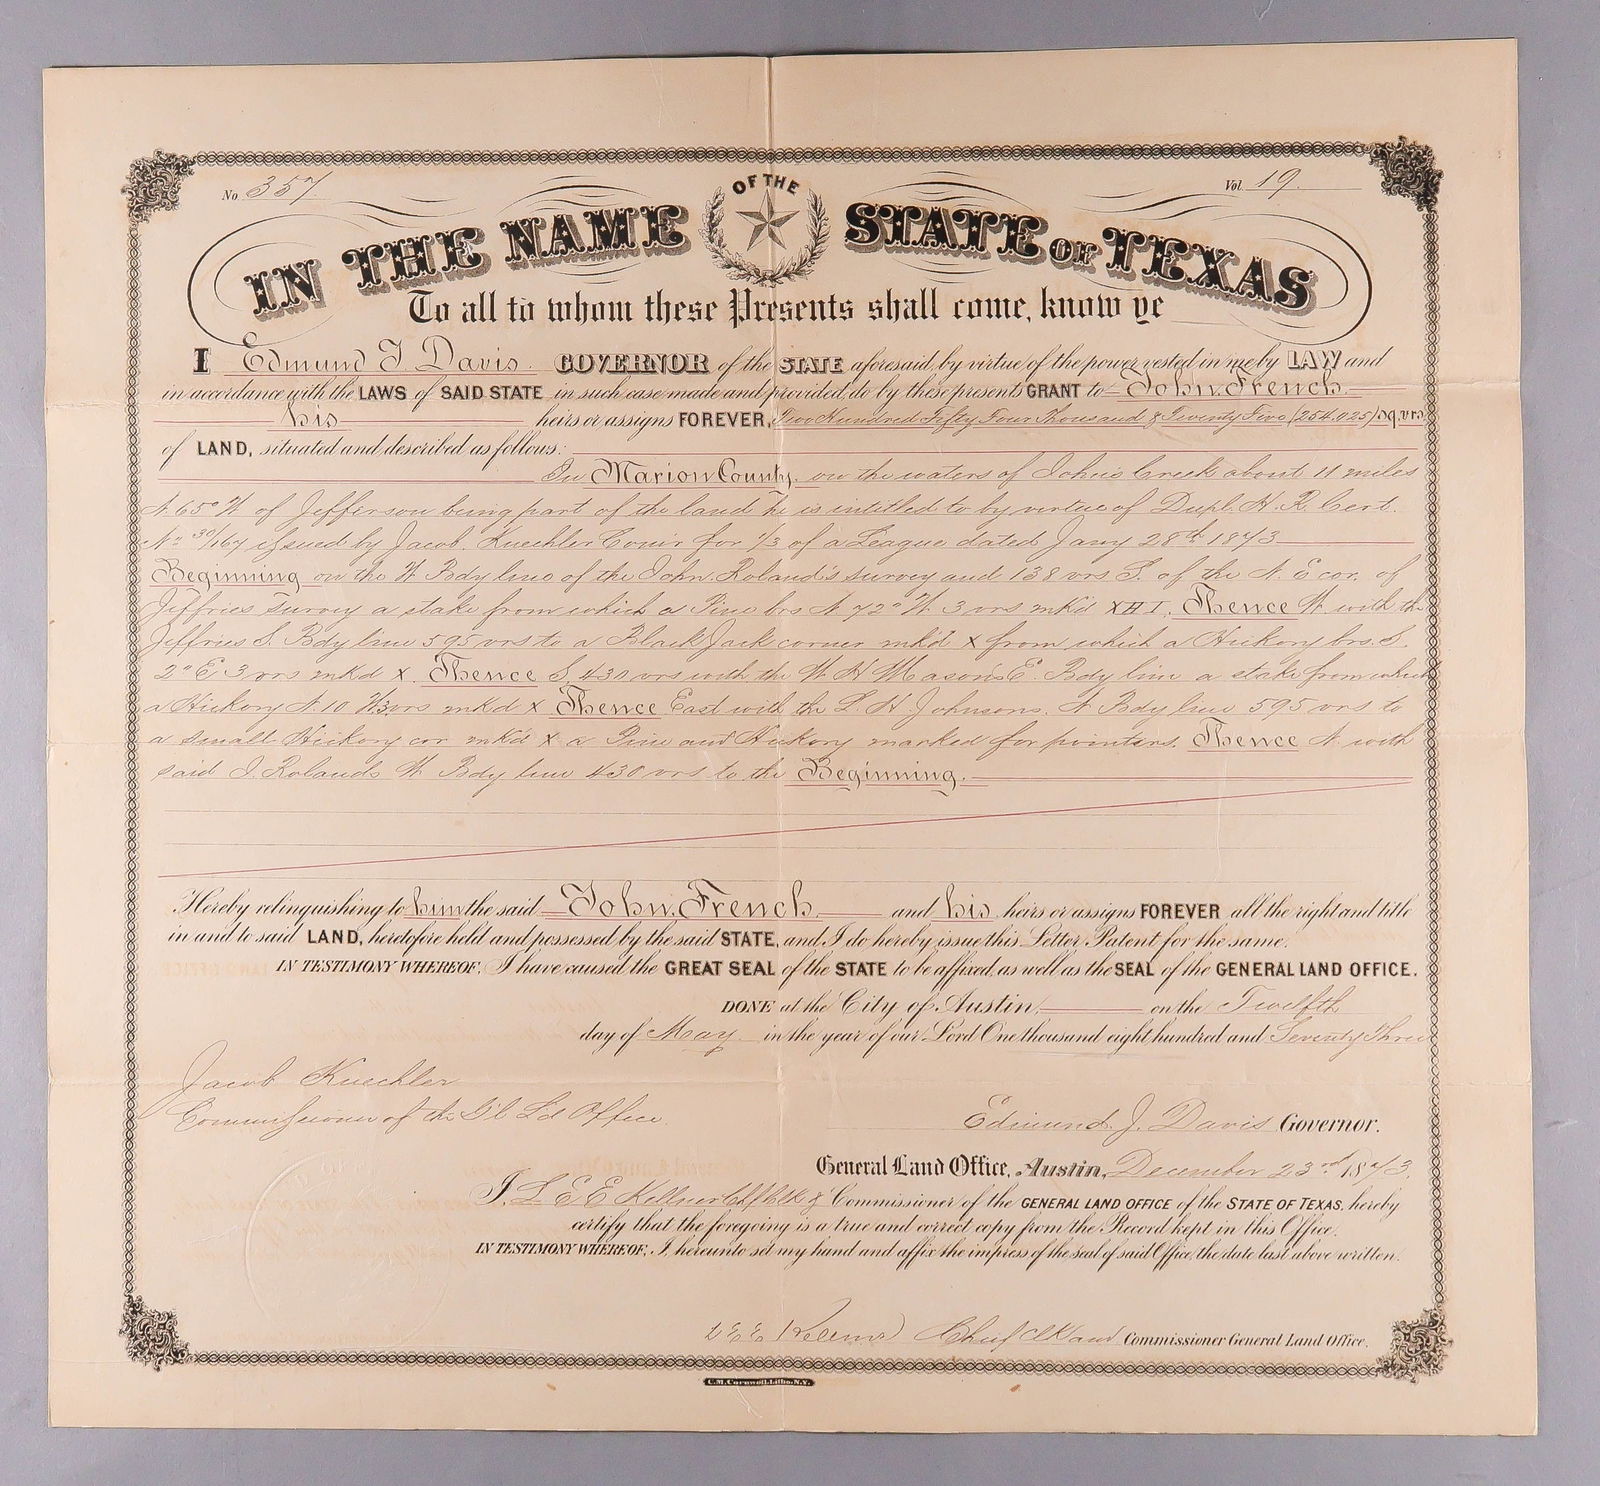 No 357 Vol. 19.
IN THE NAME OF THE STATE OF TEXAS
To all to whom these Presents shall come, know ye
I Edmund J Davis. GOVERNOR of the STATE aforesaid, by virtue of the power vested in me by LAW and
in accordance with the LAWS of SAID STATE in such case made and provided, do by these presents GRANT to John. French.
his heirs or assigns FOREVER, Two Hundred Fifty Four Thousand & Twenty Five (254.025) sq. vrs
of LAND, situated and described as follows:
In Marion County, on the waters of John's Creek about 11 miles
N. 65° W of Jefferson being part of the land he is intitled to by virtue of Dupl. H. R. Cert.
No 30/167 issued by Jacob. Kuechler Com'r for 1/3 of a League dated Jany 28th 1873
Beginning on the W Bdy line of the John. Roland's survey and 138 vrs S. of the N. E cor. of
Jeffries Survey a stake from which a Pine brs N 72° W 3 vrs mkd XHI, Thence W with the
Jeffries S. Bdy line 595 vrs to a Black Jack corner mkd X from which a Hickory brs. S.
2° E 3 vrs mkd X. Thence S. 430 vrs with the W H Mason's E. Bdy line a stake from which
a Hickory N 10 W 3 vrs mkd X Thence East with the L. H. Johnsons. N Bdy line 595 vrs to
a small Hickory cor mkd X a Pine and Hickory marked for pointers. Thence N. with
said J. Rolands W Bdy line 430 vrs to the Beginning.
Hereby relinquishing to him the said John. French. and his heirs or assigns FOREVER all the right and title
in and to said LAND, heretofore held and possessed by the said STATE, and I do hereby issue this Letter Patent for the same.
IN TESTIMONY WHEREOF, I have caused the GREAT SEAL of the STATE to be affixed, as well as the SEAL of the GENERAL LAND OFFICE.
DONE at the City of Austin, on the Twelfth
day of May in the year of our Lord One thousand eight hundred and Seventy Three
Jacob Kuechler
Commissioner of the Gl Ld Office.
Edmund J. Davis Governor.
General Land Office, Austin, December 23rd 1873.
I, L E E Kellner Chf Clk & Commissioner of the GENERAL LAND OFFICE of the STATE OF TEXAS, hereby
certify that the foregoing is a true and correct copy from the Record kept in this Office.
IN TESTIMONY WHEREOF, I, hereunto set my hand and affix the impress of the seal of said Office, the date last above written.
Chief Clk and Commissioner General Land Office.
C.M. Cornwell. Litho. N.Y.